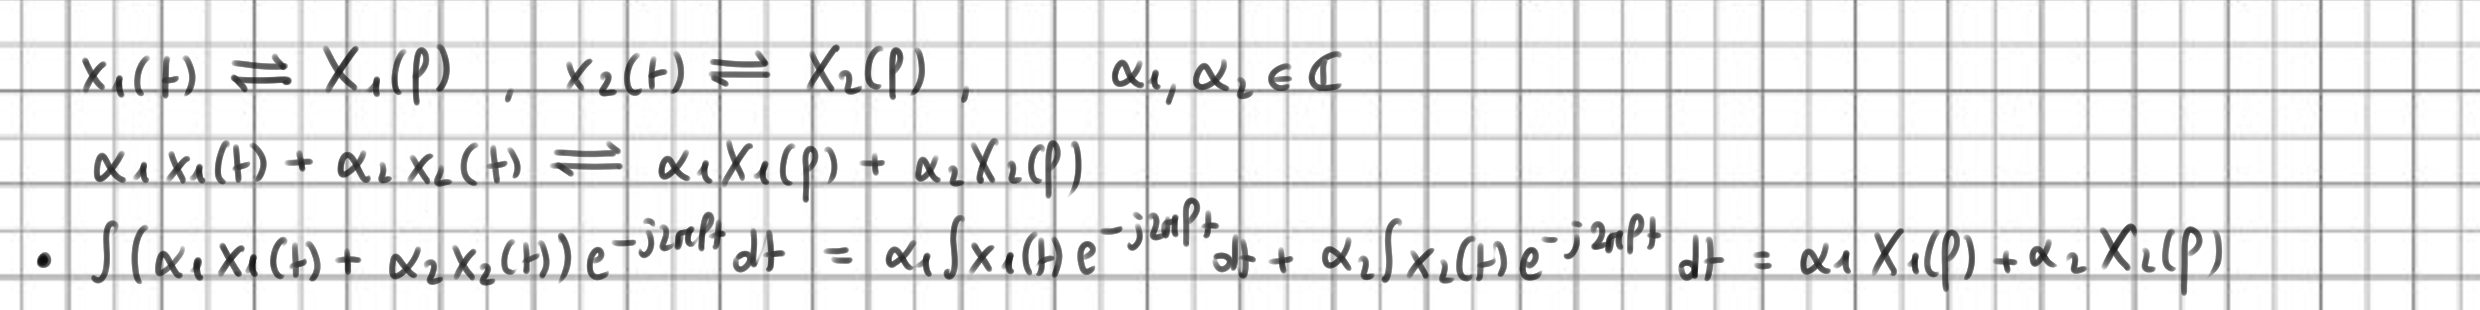 x₁(t) ⇌ X₁(f) , x₂(t) ⇌ X₂(f) , α₁, α₂ ∈ ℂ
α₁ x₁(t) + α₂ x₂(t) ⇌ α₁ X₁(f) + α₂ X₂(f)
• ∫ (α₁ x₁(t) + α₂ x₂(t)) e^{-j2πft} dt = α₁ ∫ x₁(t) e^{-j2πft} dt + α₂ ∫ x₂(t) e^{-j2πft} dt = α₁ X₁(f) + α₂ X₂(f)